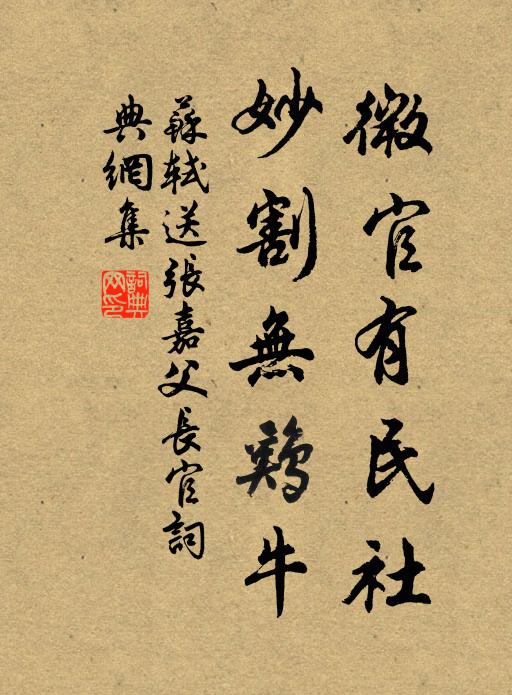 微官有民社
妙割無鷄牛
蘇軾送張嘉父長官詞
典網集
詞典
网印